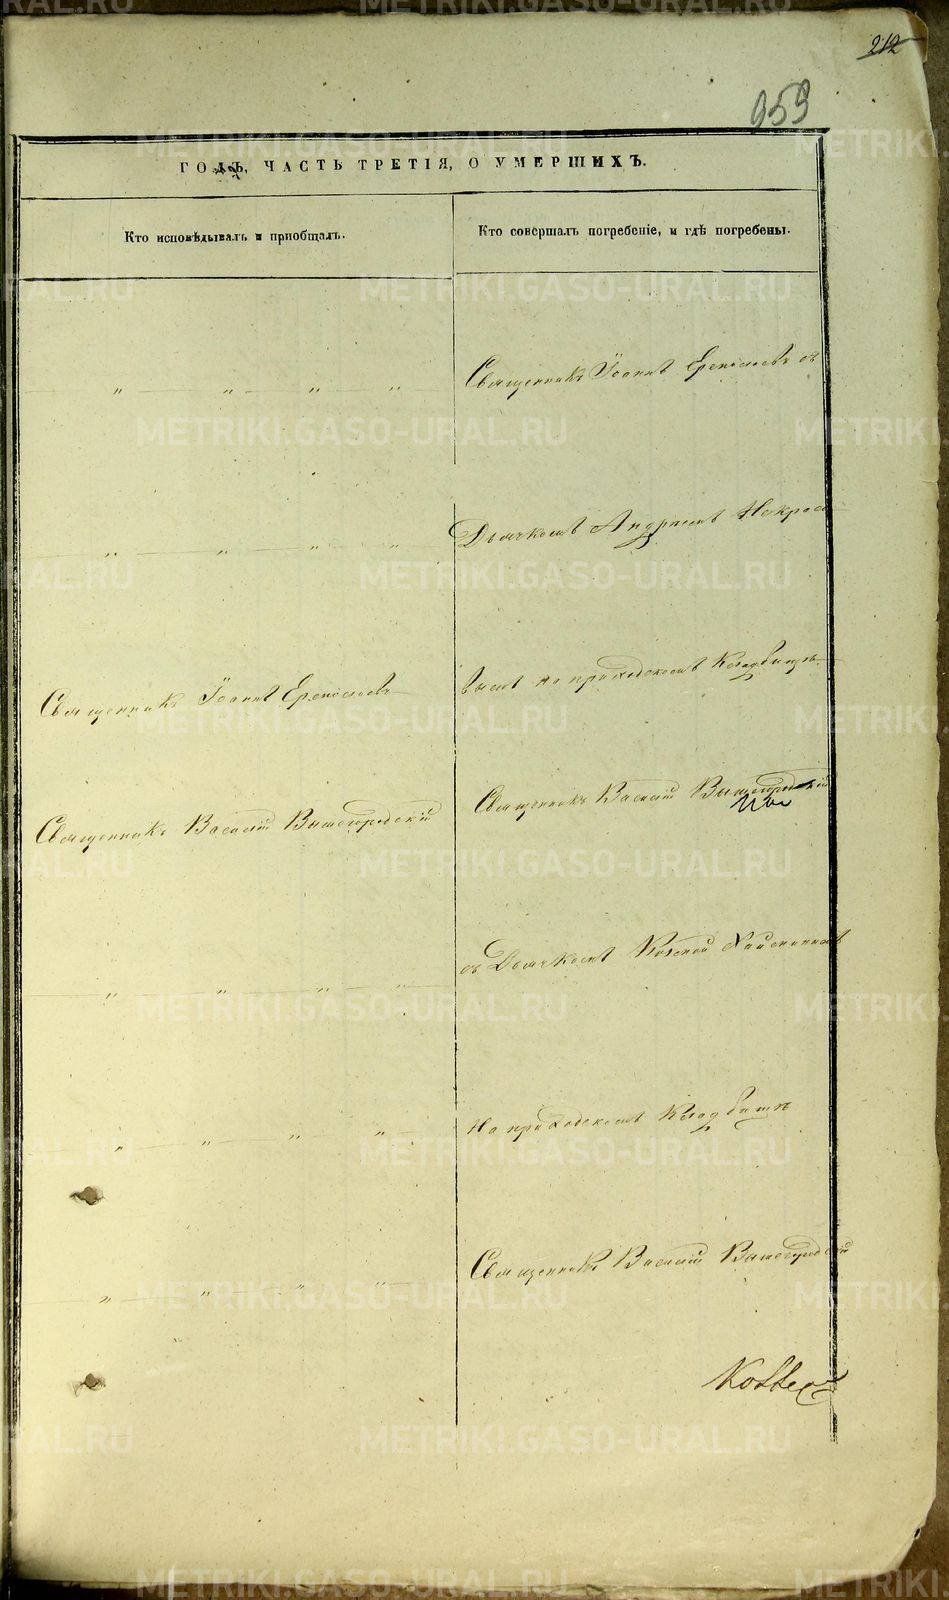 212
959
ГОДЪ, ЧАСТЬ ТРЕТІЯ, О УМЕРШИХЪ.
Кто исповѣдывалъ и пріобщалъ.
Кто совершалъ погребеніе, и гдѣ погребены.
Священникъ Іоаннъ съ
Дьячкомъ Андреемъ Некрасо
Священникъ Іоаннъ
вымъ на приходскомъ кладбищѣ
Священникъ Василій Вышегородскій
Священникъ Василій Вышегородскій
съ Дьячкомъ
На приходскомъ кладбищѣ
Священникъ Василій Вышегородскій
METRIKI.GASO-URAL.RU